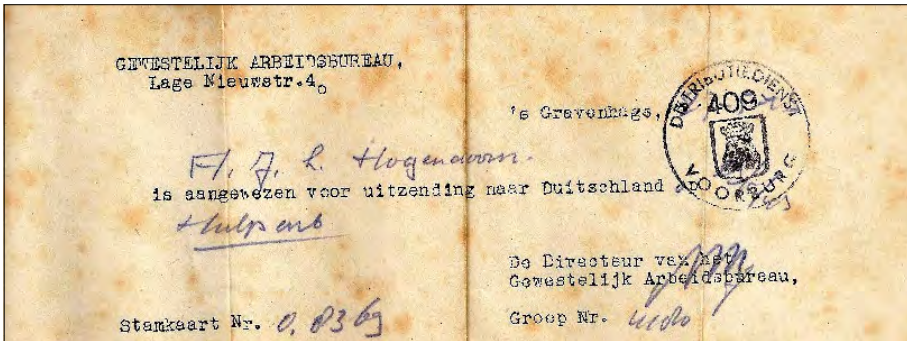 GEWESTELIJK ARBEIDSBUREAU,
Lage Nieuwstr.4.
's Gravenhage,
DISTRIBUTIEDIENST
409
VOORBURG
J. L. Hogendoorn.
is aangewezen voor uitzending naar Duitschland
Hulparb
De Directeur van het
Gewestelijk Arbeidsbureau,
Stamkaart Nr. 0.8369
Groep Nr.